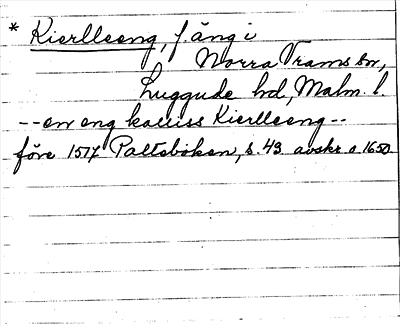 * Kierlleeng, f. äng i
Norra Vrams sn,
Luggude hd, Malm. l.
-- en eng kalliss Kierlleeng --
före 1517 Paltsboken, s. 49. avskr. o. 1650.